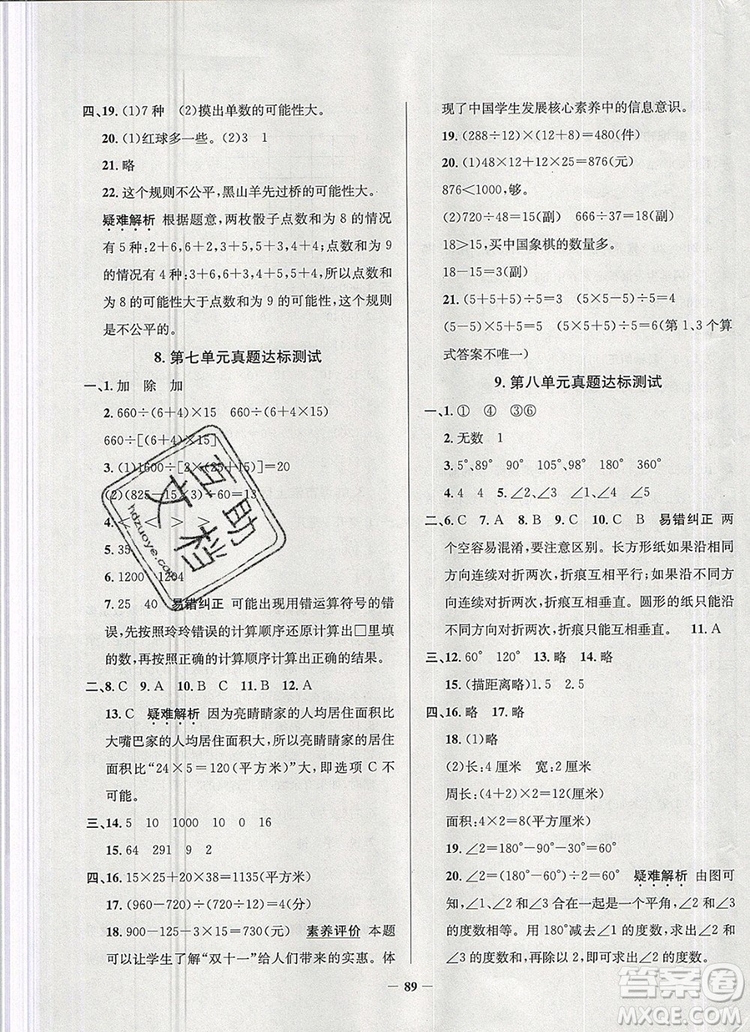 四、19. (1)7 种　(2)摸出单数的可能性大。
20. (1)红球多一些。(2)3　1
21. 略
22. 这个规则不公平,黑山羊先过桥的可能性大。
疑难解析　根据题意,两枚骰子点数和为 8 的情况
有 5 种:2+6,6+2,3+5,5+3,4+4;点数和为 9
的情况有 4 种:3+6,6+3,4+5,5+4,所以点数和
为 8 的可能性大于点数和为 9 的可能性,这个规则
是不公平的。
8. 第七单元真题达标测试
一、1. 加　除　加
2. 660÷(6+4)×15　660÷(6+4)×15
660÷[(6+4)×15]
3. (1)1600÷[2×(25+15)]=20
(2)(825-15)×
4. <
5. 35
6. 1200　1204
7. 25　40　易错纠正　可能出现用错运算符号的错
误,先按照玲玲错误的计算顺序还原计算出□里填
的数,再按正确的计算顺序计算出正确的结果。
二、8. C　9. A　10. B　11. C　12. C
13. C　疑难解析　因为亮睛睛家的人均居住面积比
大嘴巴家的人均居住面积大,所以亮睛睛家的居住
面积比“24×5=120(平方米)”大,即选项 C 不
可能。
三、14. 5　10　1000　10　0　16
15. 64　291　9　2
四、16. 15×25+20×38=1135(平方米)
17. (960-720)÷(720÷12)=4(分)
18. 900-125-3×15=730(元)　素养评价　本题
可以让学生了解“双十一”给人们带来的实惠。体
现了中国学生发展核心素养中的信息意识。
19. (288÷12)×(12+8)=480(件)
20. (1)48×12+12×25=876(元)
876<1000,够。
(2)720÷48=15(副)　666÷37=18(副)
18>15,买中国象棋的数量多。
18-15=3(副)
21. (5+5+5)÷5=3　(5×5-5)÷5=4
(5-5)×5+5=5　(5×5+5)÷5=6(第 1、3 个算
式答案不唯一)
9. 第八单元真题达标测试
一、1. ①　④　③⑥
2. 无数　1
3. 5°、89°　90°　105°、91°、120°　180°　360°
4. 4　4　∠2　∠3　∠1　∠2　∠4
二、6. C　7. B　8. C　9. C　10. C　A　易错纠正　两
个空容易混淆,要仔细区分。长方形纸如果向同一
方向连续对折两次,折痕互相平行;如果向不同的
方向连续对折两次,折痕互相垂直。圆形的纸只能
向不同的方向对折,所以折痕互相垂直。　11. A
三、12. 60°　120°　13. 略　14. 略
15. (描距离略)1.5　2.5
四、16. 略　17. 略
18. (1)略
(2)长:4 厘米　宽:2 厘米
周长:(4+2)×2=12(厘米)
面积:4×2=8(平方厘米)
19. ∠2=180°-90°-50°=40°
20. ∠2=(180°-60°)÷2=60°　疑难解析　由图可
知,∠1、∠2 和∠3 合在一起是一个平角,∠2 和∠3
的度数相等。用 180°减去∠1 的度数就是∠2 和∠3
的度数和,再除以 2,即可求出∠2 的度数。
89
互助
文档
hdzuoye.com
答案圈
MXQE.COM